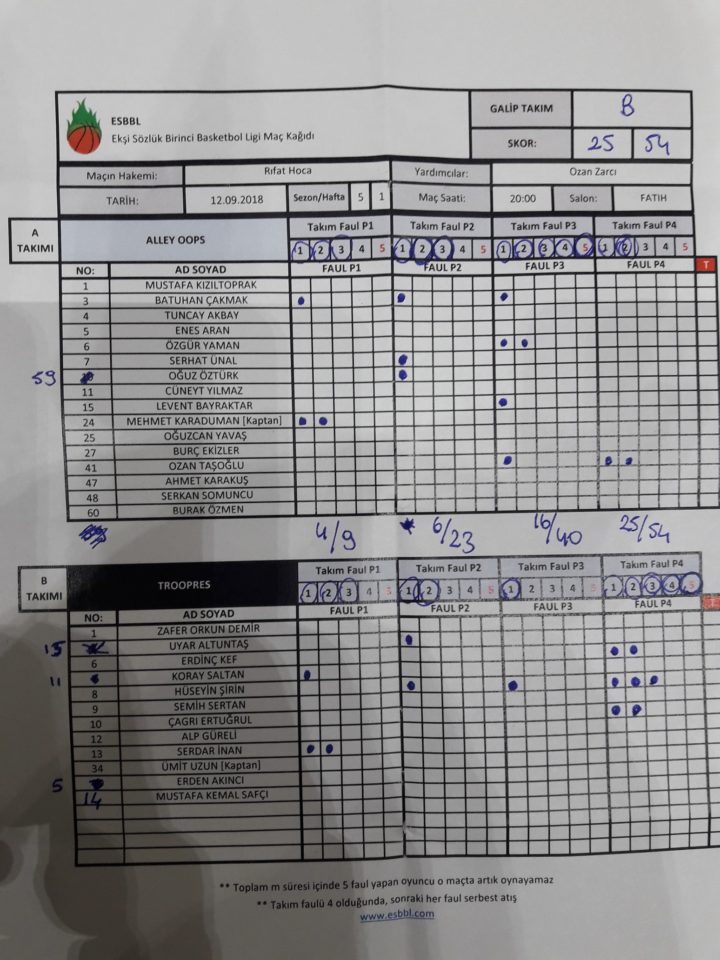 ESBBL
Ekşi Sözlük Birinci Basketbol Ligi Maç Kağıdı
GALİP TAKIM B
SKOR: 25 54
Maçın Hakemi: Rıfat Hoca Yardımcılar: Ozan Zarcı
TARİH: 12.09.2018 Sezon/Hafta 5 1 Maç Saati: 20:00 Salon: FATIH
A TAKIMI ALLEY OOPS Takım Faul P1 Takım Faul P2 Takım Faul P3 Takım Faul P4
1 2 3 4 5 1 2 3 4 5 1 2 3 4 5 1 2 3 4 5
NO: AD SOYAD FAUL P1 FAUL P2 FAUL P3 FAUL P4 T
1 MUSTAFA KIZILTOPRAK
3 BATUHAN ÇAKMAK
4 TUNCAY AKBAY
5 ENES ARAN
6 ÖZGÜR YAMAN
7 SERHAT ÜNAL
59 OĞUZ ÖZTÜRK
11 CÜNEYT YILMAZ
15 LEVENT BAYRAKTAR
24 MEHMET KARADUMAN [Kaptan]
25 OĞUZCAN YAVAŞ
27 BURÇ EKİZLER
41 OZAN TAŞOĞLU
47 AHMET KARAKUŞ
48 SERKAN SOMUNCU
60 BURAK ÖZMEN
4/9 6/23 16/40 25/54
B TAKIMI TROOPRES Takım Faul P1 Takım Faul P2 Takım Faul P3 Takım Faul P4
1 2 3 4 5 1 2 3 4 5 1 2 3 4 5 1 2 3 4 5
NO: AD SOYAD FAUL P1 FAUL P2 FAUL P3 FAUL P4 T
1 ZAFER ORKUN DEMİR
15 UYAR ALTUNTAŞ
6 ERDİNÇ KEF
11 KORAY SALTAN
8 HÜSEYİN ŞİRİN
9 SEMİH SERTAN
10 ÇAGRI ERTUĞRUL
12 ALP GÜRELİ
13 SERDAR İNAN
34 ÜMİT UZUN [Kaptan]
5 ERDEN AKINCI
14 MUSTAFA KEMAL SAFÇI
** Toplam m süresi içinde 5 faul yapan oyuncu o maçta artık oynayamaz
** Takım faulü 4 olduğunda, sonraki her faul serbest atış
www.esbbl.com